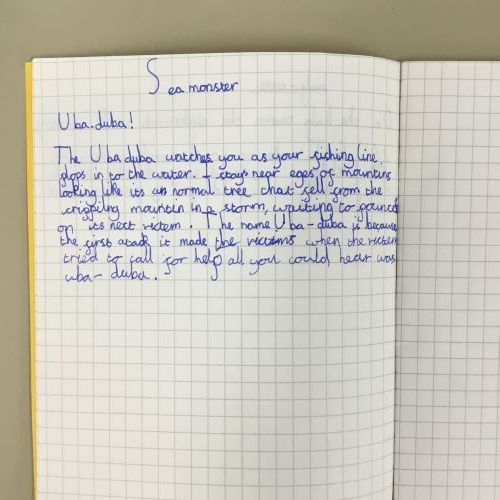 Sea monster
Uba-duba!
The Uba duba watches you as your fishing line
plops in to the water. It stays near eges of mountins
looking like its an normal tree that fell from the
cripping mountin in a storm, waiting to pounce
on its next victem. The name Uba-duba is because
the first atack it made the victems when the victem
tried to call for help all you could hear was
uba-duba.